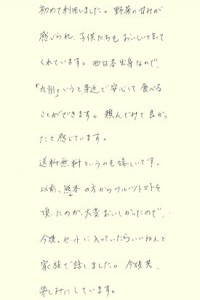 初めて利用しました。野菜の甘みが
感じられ、子供たちもおいしいと言って
くれています。西日本出身なので、
「九州」というと身近で安心して食べる
ことができます。頼んでみて良かっ
たと感じています。
送料無料というのも嬉しいです。
以前、熊本の方からフルーツトマトを
頂いたのが、大変おいしかったので、
今後、セットに入っていたらいいねんと
家族で話しました。今後共、
楽しみにしています。